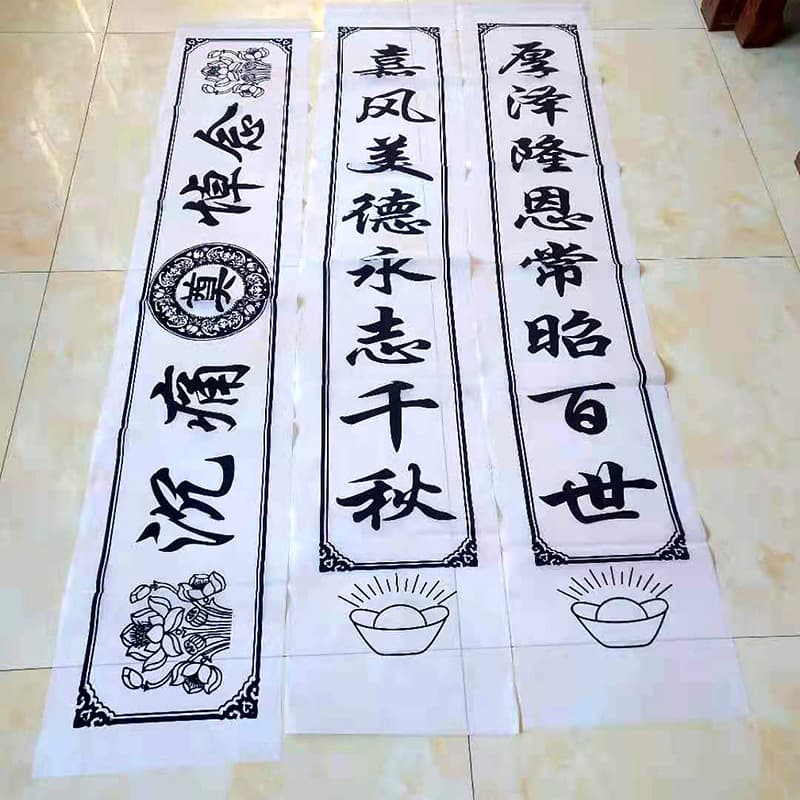 沉痛奠悼念
熹风美德永志千秋
厚泽隆恩常昭百世